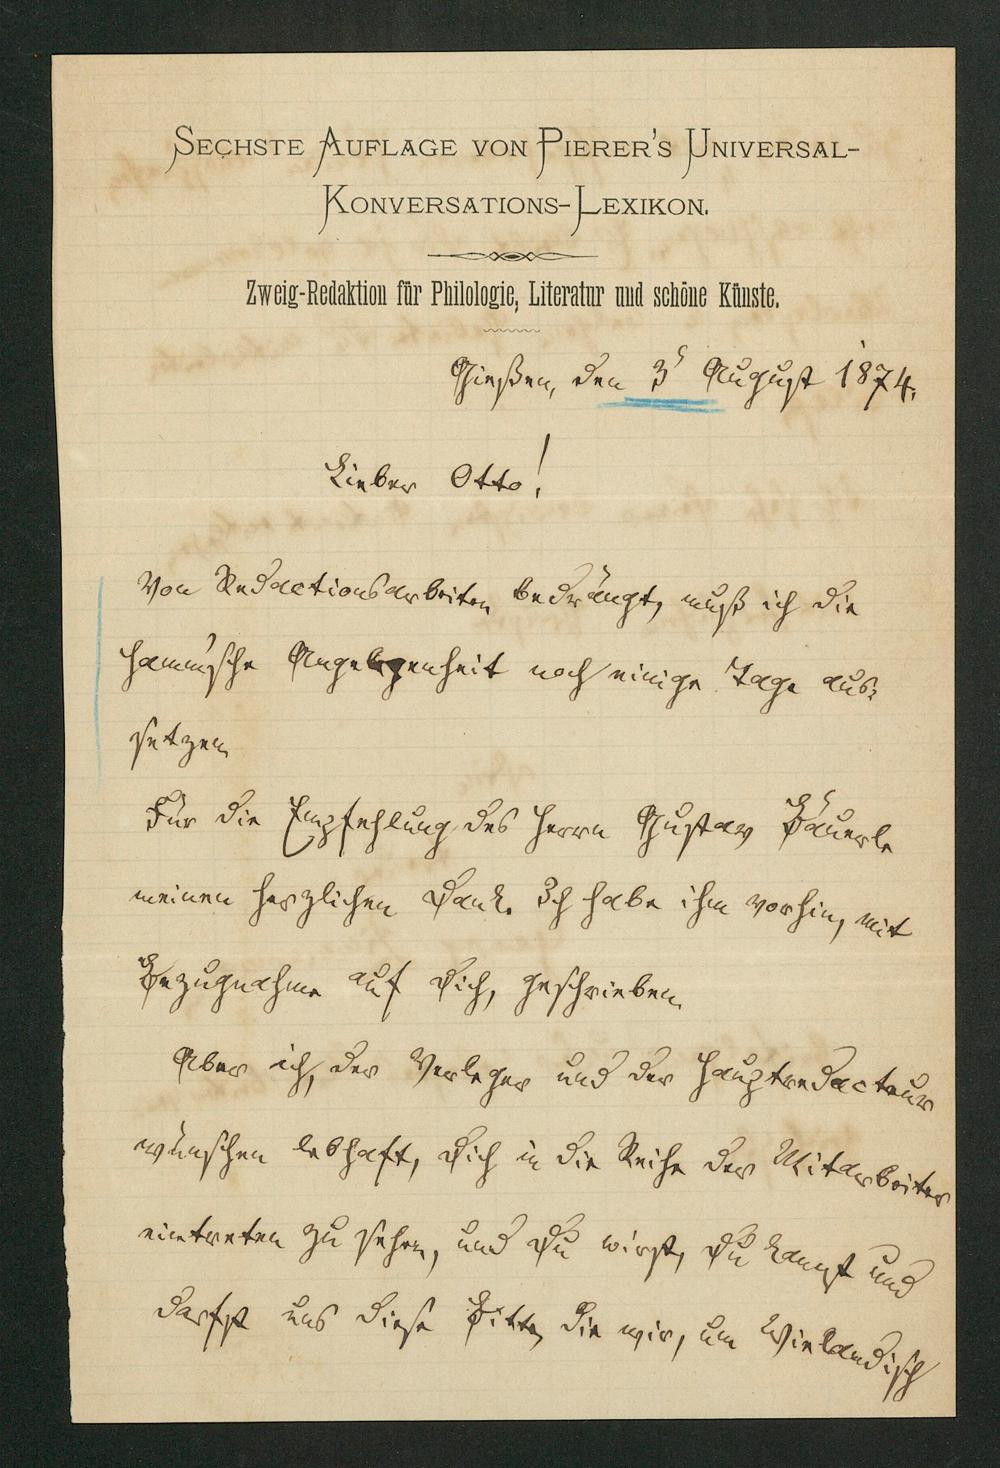 SECHSTE AUFLAGE VON PIERER'S UNIVERSAL-
KONVERSATIONS-LEXIKON.
Zweig-Redaktion für Philologie, Literatur und schöne Künste.
Gießen, den 3 August 1874.
Lieber Otto!
Von Redactionsarbeiten bedrängt, muß ich die
Angelegenheit noch einige Tage aus-
setzen
Für die Empfehlung des Herrn Gustav Bäuerle
meinen herzlichen Dank. Ich habe ihm vorhin, mit
Bezugnahme auf Dich, geschrieben.
Aber ich, der Verleger und der Hauptredacteur
wünschen lebhaft, Dich in die Reihe der Mitarbeiter
eintreten zu sehen, und Du wirst, Du kannst und
darfst uns diese Bitte, die wir, um Wielandisch